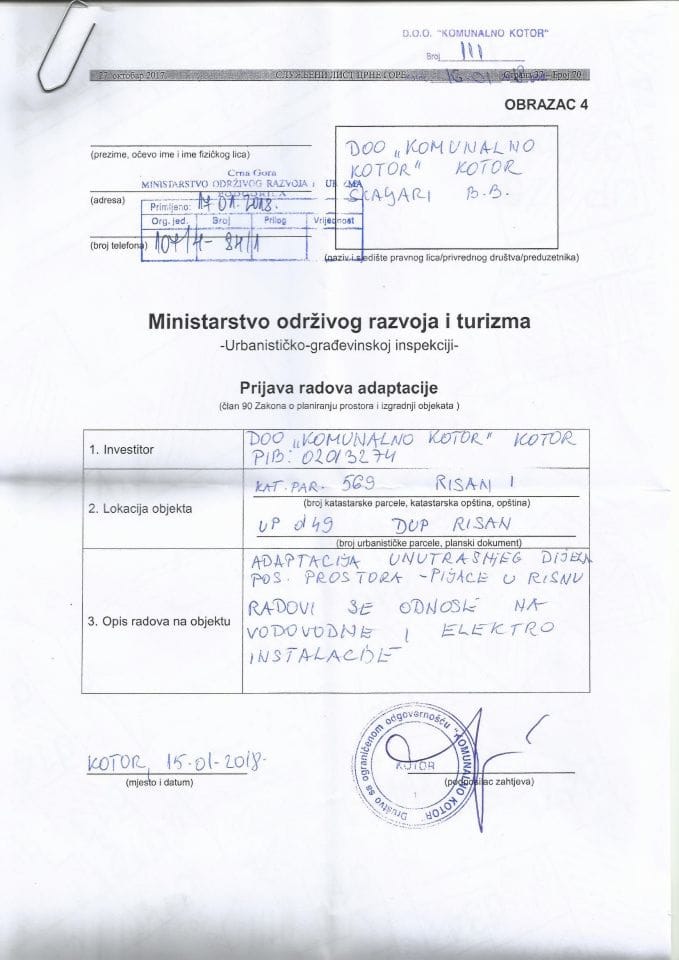 D.O.O. "KOMUNALNO KOTOR"
Broj 111
16.01
27. октобар 2017. СЛУЖБЕНИ ЛИСТ ЦРНЕ ГОРЕ Страна 37 - Број 70
OBRAZAC 4
DOO „KOMUNALNO
KOTOR" KOTOR
ŠKALJARI B.B.
(prezime, očevo ime i ime fizičkog lica)
Crna Gora
MINISTARSTVO ODRŽIVOG RAZVOJA I
(adresa)
Primljeno: 17 01. 2018.
Org. jed. Broj Prilog Vrijednost
107/4- 84/1
(broj telefona)
(naziv i sjedište pravnog lica/privrednog društva/preduzetnika)
Ministarstvo održivog razvoja i turizma
-Urbanističko-građevinskoj inspekciji-
Prijava radova adaptacije
(član 90 Zakona o planiranju prostora i izgradnji objekata )
1. Investitor
DOO „KOMUNALNO KOTOR" KOTOR
PIB: 02013274
2. Lokacija objekta
KAT. PAR. 569 RISAN I
(broj katastarske parcele, katastarska opština, opština)
UP d49 DUP RISAN
(broj urbanističke parcele, planski dokument)
3. Opis radova na objektu
ADAPTACIJA UNUTRAŠNJEG DIJELA
POS. PROSTORA - PIJACE U RISNU
RADOVI SE ODNOSE NA
VODOVODNE I ELEKTRO
INSTALACIJE
KOTOR, 15-01-2018.
(mjesto i datum)
Društvo sa ograničenom odgovornošću "KOMUNALNO KOTOR"
KOTOR
1
(podnosilac zahtjeva)